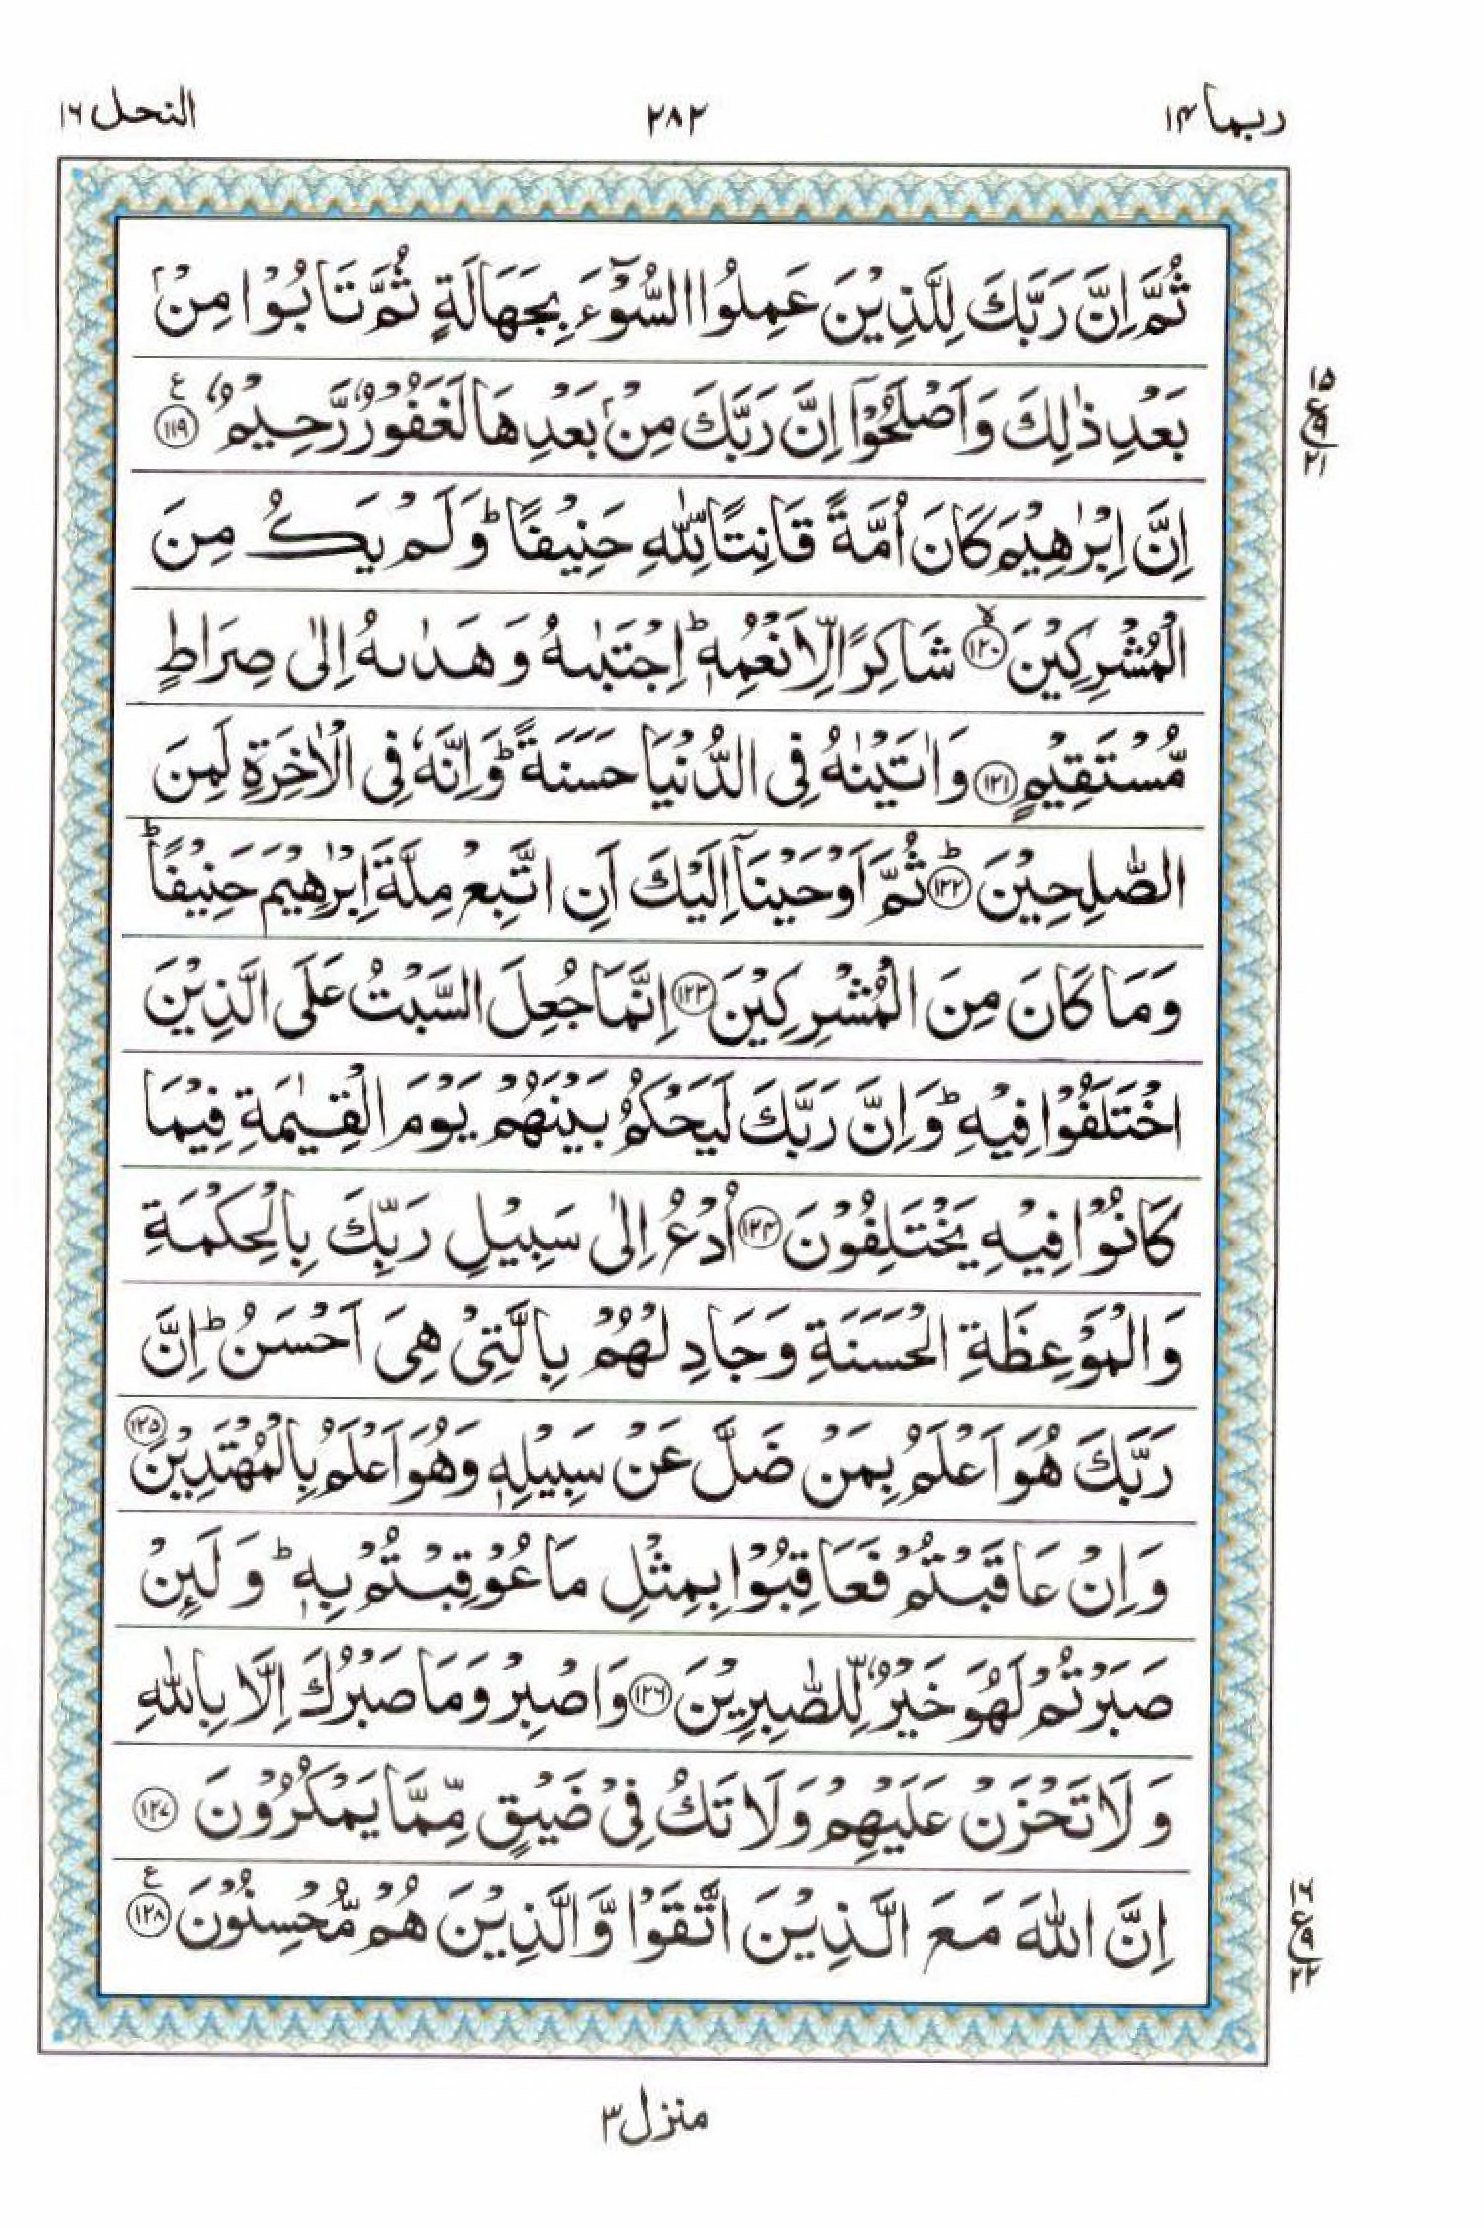 ربما ١٤
٢٨٢
النحل ١٦
ثُمَّ اِنَّ رَبَّكَ لِلَّذِيْنَ عَمِلُوا السُّوْٓءَ بِجَهَالَةٍ ثُمَّ تَابُوْا مِنْۢ
بَعْدِ ذٰلِكَ وَاَصْلَحُوْٓا اِنَّ رَبَّكَ مِنْۢ بَعْدِهَا لَغَفُوْرٌ رَّحِيْمٌ ﴿١١٩﴾ ع
١٥
ع
٩
٢١
اِنَّ اِبْرٰهِيْمَ كَانَ اُمَّةً قَانِتًا لِّلّٰهِ حَنِيْفًا ؕ وَلَمْ يَكُ مِنَ
الْمُشْرِكِيْنَ ﴿١٢٠﴾ ۙ شَاكِرًا لِّاَنْعُمِهٖ ؕ اِجْتَبٰىهُ وَهَدٰىهُ اِلٰى صِرَاطٍ
مُّسْتَقِيْمٍ ﴿١٢١﴾ وَاٰتَيْنٰهُ فِى الدُّنْيَا حَسَنَةً ؕ وَاِنَّهٗ فِى الْاٰخِرَةِ لَمِنَ
الصّٰلِحِيْنَ ﴿١٢٢﴾ ؕ ثُمَّ اَوْحَيْنَآ اِلَيْكَ اَنِ اتَّبِعْ مِلَّةَ اِبْرٰهِيْمَ حَنِيْفًا ؕ
وَمَا كَانَ مِنَ الْمُشْرِكِيْنَ ﴿١٢٣﴾ اِنَّمَا جُعِلَ السَّبْتُ عَلَى الَّذِيْنَ
اخْتَلَفُوْا فِيْهِ ؕ وَاِنَّ رَبَّكَ لَيَحْكُمُ بَيْنَهُمْ يَوْمَ الْقِيٰمَةِ فِيْمَا
كَانُوْا فِيْهِ يَخْتَلِفُوْنَ ﴿١٢٤﴾ اُدْعُ اِلٰى سَبِيْلِ رَبِّكَ بِالْحِكْمَةِ
وَالْمَوْعِظَةِ الْحَسَنَةِ وَجَادِلْهُمْ بِالَّتِىْ هِىَ اَحْسَنُ ؕ اِنَّ
رَبَّكَ هُوَ اَعْلَمُ بِمَنْ ضَلَّ عَنْ سَبِيْلِهٖ وَهُوَ اَعْلَمُ بِالْمُهْتَدِيْنَ ﴿١٢٥﴾
وَاِنْ عَاقَبْتُمْ فَعَاقِبُوْا بِمِثْلِ مَا عُوْقِبْتُمْ بِهٖ ؕ وَلَئِنْ
صَبَرْتُمْ لَهُوَ خَيْرٌ لِّلصّٰبِرِيْنَ ﴿١٢٦﴾ وَاصْبِرْ وَمَا صَبْرُكَ اِلَّا بِاللّٰهِ
وَلَا تَحْزَنْ عَلَيْهِمْ وَلَا تَكُ فِىْ ضَيْقٍ مِّمَّا يَمْكُرُوْنَ ﴿١٢٧﴾
اِنَّ اللّٰهَ مَعَ الَّذِيْنَ اتَّقَوْا وَّالَّذِيْنَ هُمْ مُّحْسِنُوْنَ ﴿١٢٨﴾ ع
١٦
ع
٩
٢٢
منزل ٣